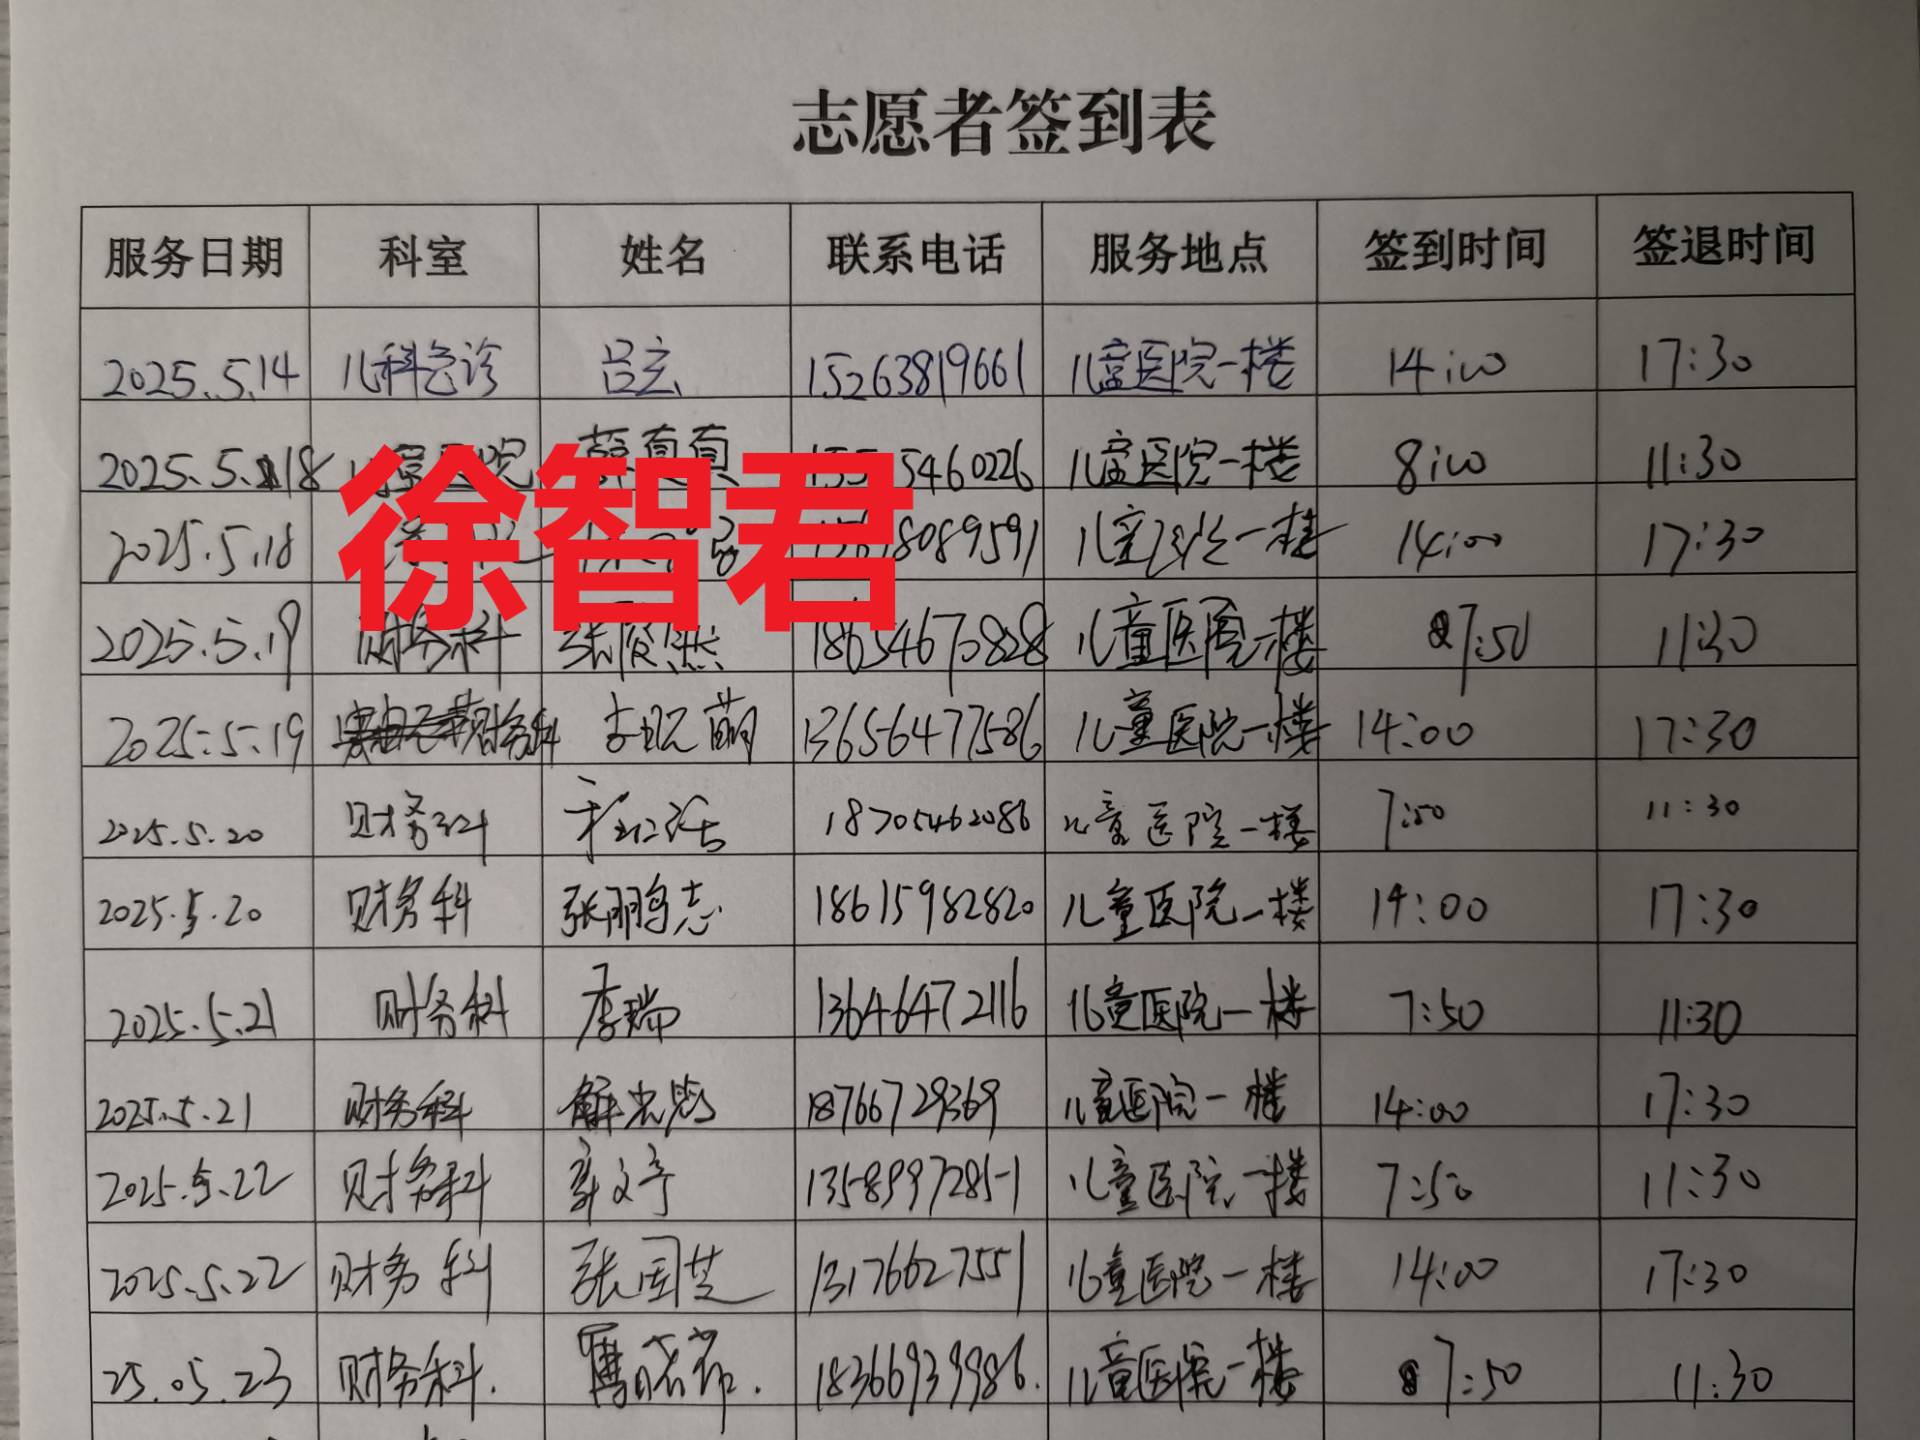 志愿者签到表
服务日期 科室 姓名 联系电话 服务地点 签到时间 签退时间
2025.5.14 儿科急诊 吕玄 15263819661 儿童医院一楼 14:00 17:30
2025.5.18 真真 5460226 儿童医院一楼 8:00 11:30
徐智君
2025.5.18 8089591 儿童医院一楼 14:00 17:30
2025.5.19 财务科 张 18654670828 儿童医院一楼 7:50 11:30
2025.5.19 财务科 李现萌 13656477586 儿童医院一楼 14:00 17:30
2025.5.20 财务科 18705462086 儿童医院一楼 7:50 11:30
2025.5.20 财务科 张鹏志 18615982820 儿童医院一楼 14:00 17:30
2025.5.21 财务科 李瑞 13646472116 儿童医院一楼 7:50 11:30
2025.5.21 财务科 解 18766729369 儿童医院一楼 14:00 17:30
2025.5.22 财务科 文 13589972851 儿童医院一楼 7:50 11:30
2025.5.22 财务科 张国芝 13176627551 儿童医院一楼 14:00 17:30
25.05.23 财务科. 18366939986. 儿童医院一楼 7:50 11:30